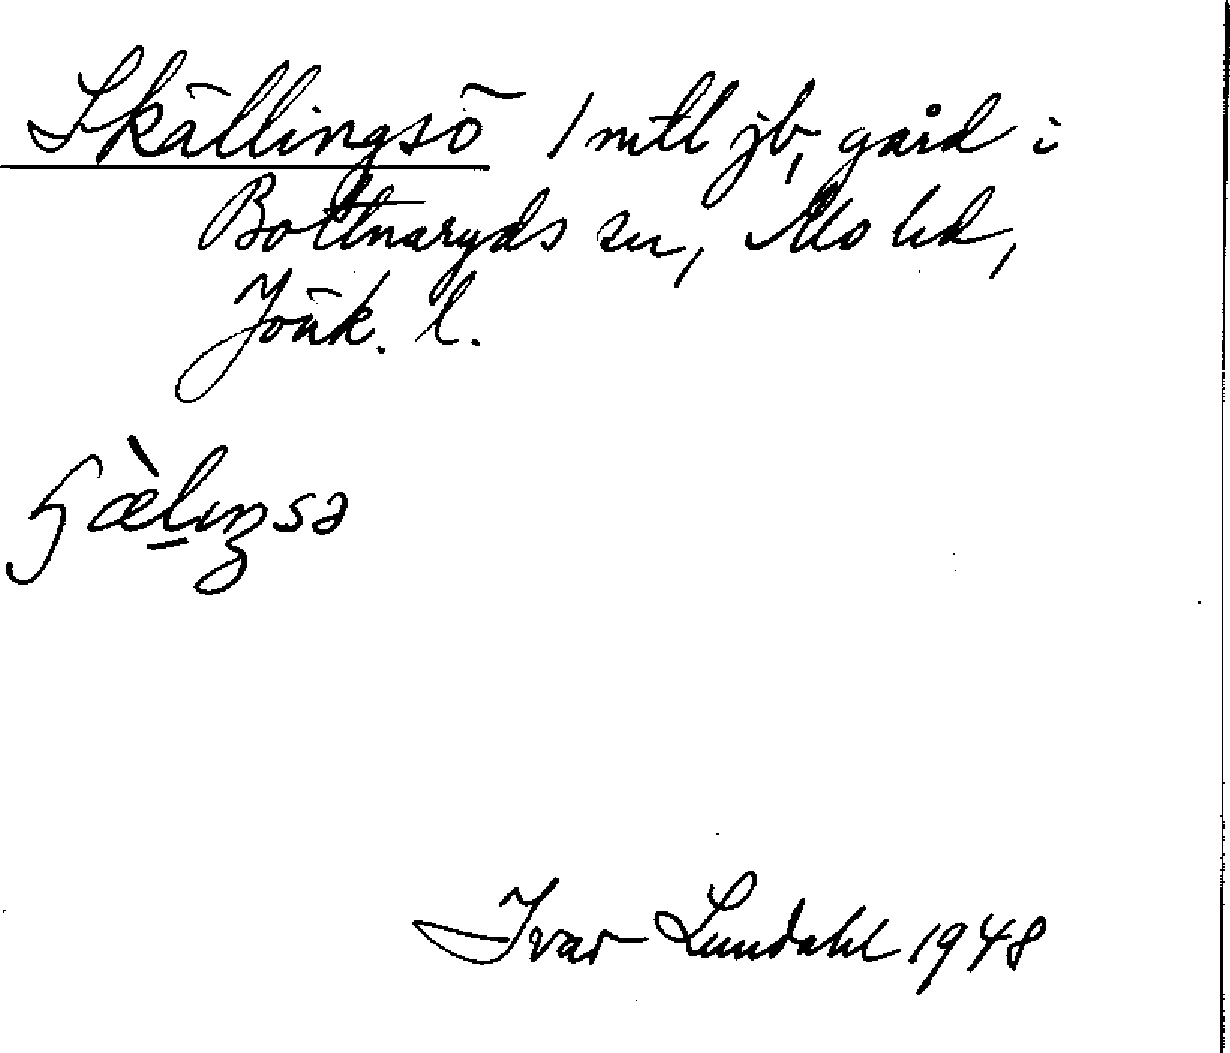 Skällingsö 1 mtl jb, gård i
Bottnaryds sn, Mo hd,
Jönk. l.
ʃæ̀lıŋsə
Ivar Lundahl 1948